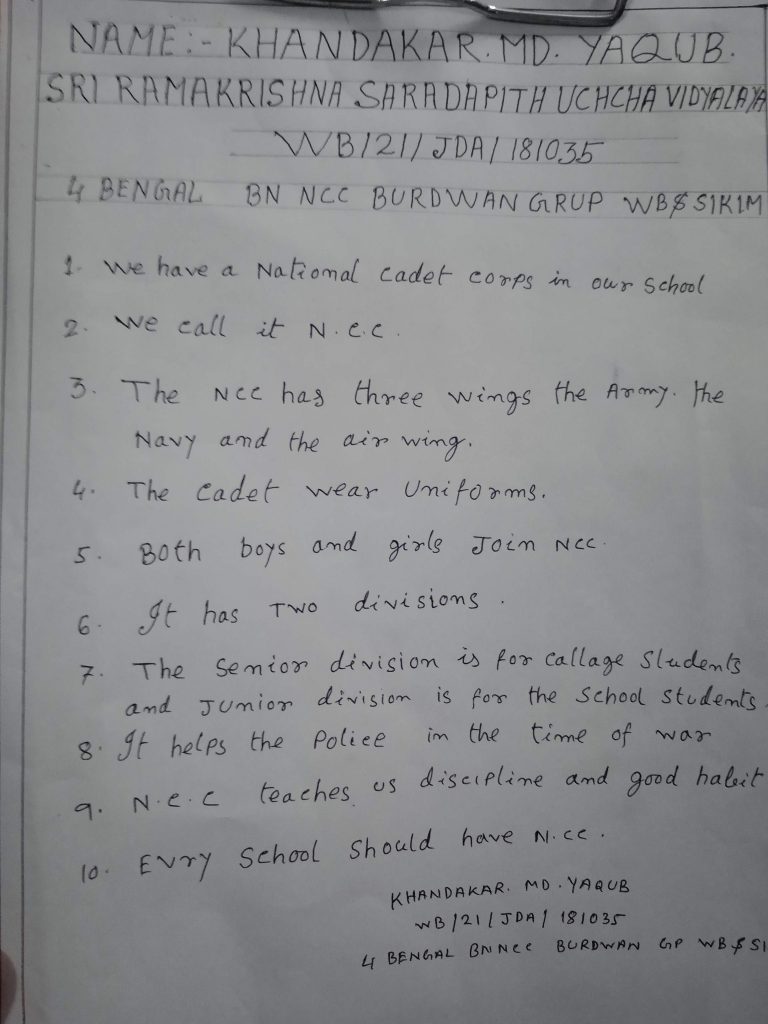 NAME:- KHANDAKAR. MD. YAQUB.
SRI RAMAKRISHNA SARADAPITH UCHCHA VIDYALAYA
WB/21/JDA/181035
4 BENGAL BN NCC BURDWAN GRUP WB$ SIKIM
1. We have a National cadet corps in our School
2. We call it N.C.C.
3. The NCC has three wings the Army. the
Navy and the air wing.
4. The Cadet wear Uniforms.
5. Both boys and girls Join NCC.
6. It has TWO divisions.
7. The Senior division is for Callage Students
and JUnior division is for the School students.
8. It helps the Police in the time of war
9. N.C.C teaches us discipline and good habit
10. EVry School Should have N.CC.
KHANDAKAR. MD. YAQUB
WB/21/JDA/181035
4 BENGAL BN NCC BURDWAN GP WB $ SI